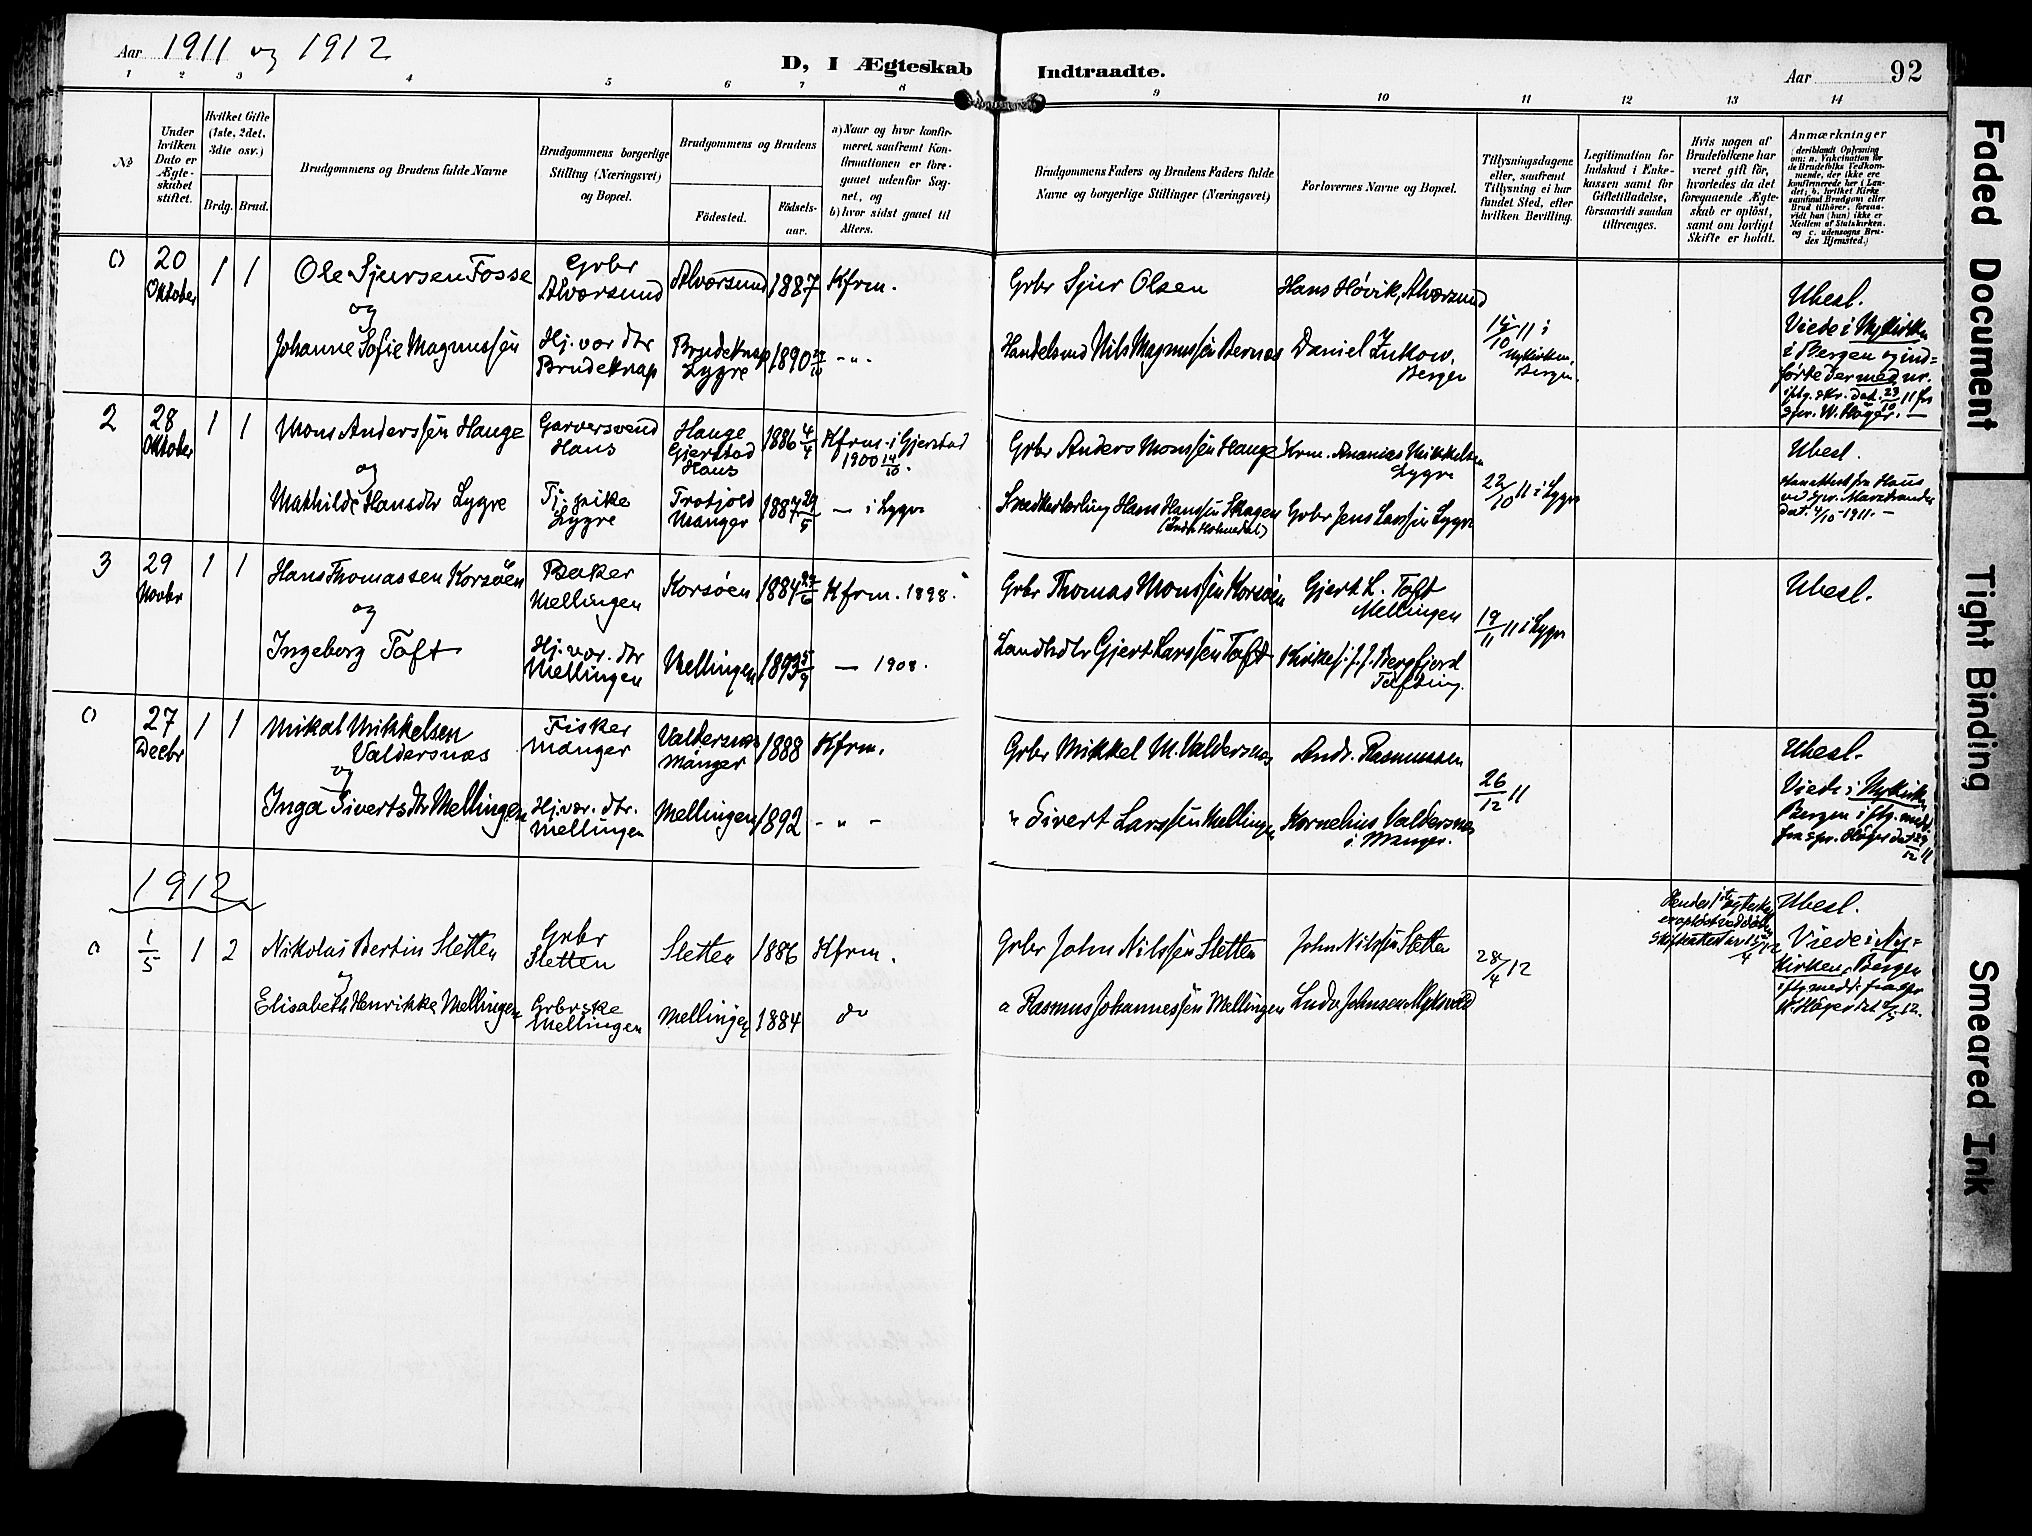 Aar 1911 og 1912
D, I Ægteskab Indtraadte.
Aar 92
1 2 3 4 5 6 7 8 9 10 11 12 13 14
No
Under hvilken Dato er Ægteskabet stiftet.
Hvilket Gifte (1ste, 2det, 3die osv.)
Brdg. Brud.
Brudgommens og Brudens fulde Navne
Brudgommens borgerlige Stilling (Næringsvei) og Bopæl.
Brudgommens og Brudens
Födested.
Födselsaar.
a) Naar og hvor konfirmeret, saafremt Konfirmationen er foregaaet udenfor Sognet, og
b) hvor sidst gaaet til Alters.
Brudgommens Faders og Brudens Faders fulde Navne og borgerlige Stillinger (Næringsvei)
Forlovernes Navne og Bopæl.
Tillysningsdagene eller, saafremt Tillysning ei har fundet Sted, efter hvilken Bevilling.
Legitimation for Indskud i Enkekassen samt for Giftetilladelse, forsaavidt saadan tiltrænges.
Hvis nogen af Brudefolkene har været gift för, hvorledes da det foregaaende Ægteskab er oplöst, samt om lovligt Skifte er holdt.
Anmærkninger
(deriblandt Oplysning om: a. Vakcination for de Brudefolks Vedkommende, der ikke ere konfirmerede her i Landet; b. hvilket Kirkesamfund Brudgom eller Brud tilhörer, forsaavidt han (hun) ikke er Medlem af Statskirken. og c. udensogns Brudes Hjemsted.)
0 20 Oktober 1 1
Ole Sjursen Fosse
og
Johanne Sofie Magnussen
Grbr Alversund
Hj. vær. dtr Brudeknap
Alversund 1887 Kfrm.
Brudeknap Lygre 1890 -"-
Grbr Sjur Olsen
Handelsmd Nils Magnussen Bernes
Hans Høvik, Alversund
Daniel
Bergen
15/10 11 i Nykirken, Bergen.
Ubesl.
Viede i Nykirken i Bergen og indførte der med nr.
2 28 Oktober 1 1
Mons Anderssen Hauge
og
Mathilde Hansdtr Lygre
Garversvend Haus
Tj. pike Lygre
Hauge Gjerstad Haus 1886 4/4 Kfrm. i Gjerstad 1900 14/10.
Manger 1887 29/5 — i Lygre
Grbr Anders Monssen Hauge
Hans Hanssen Skagen
Krm. Ananias Mikkelsen Lygre
Grbr Jens Larssen Lygre
22/10 11 i Lygre
Ubesl.
dat. 4/10-1911.-
3 29 Novbr 1 1
Hans Thomassen Korsøen
og
Ingeborg Toft
Baker Mellingen
Hj. vær. dtr Mellingen
Korsøen 1884 27/6 Kfrm. 1898.
Mellingen 1893 5/9 — 1908.
Grbr Thomas Monssen Korsøen
Landhdlr Gjert Larssen Toft
Gjert L. Toft Mellingen
Kirkesj. J. J. Bergfjord
19/11 11 i Lygre
Ubesl.
0 27 Decbr 1 1
Mikal Mikkelsen Valdersnæs
og
Inga Sivertsdtr Mellingen
Fisker Manger
Hj. vær. dtr. Mellingen
Valdersnæs Manger 1888 Kfrm.
Mellingen 1892 - " -
Grbr Mikkel M. Valdersnæs
" Sivert Larssen Mellingen
Andr. Rasmussen
Kornelius Valdersnæs i Manger.
26/12 11
Ubesl.
Viede i Nykirken Bergen iflg. medd. fra spr. Höger dat 29/12 11
1912
0 1/5 1 2
Nikolai Bertin Sletten
og
Elisabeth Henrikke Mellingen
Grbr Sletten
Grbrske Mellingen
Sletten 1886 Kfrm.
Mellingen 1884 do
Grbr John Nilssen Sletten
Rasmus Johannessen Mellingen
John Nilssen Sletten
Johnsen
28/4 12
Ubesl.
Viede i Nykirken, Bergen iflg medd. fra spr W. Höger dat 2/5 12.
Faded Document
Tight Binding
Smeared Ink